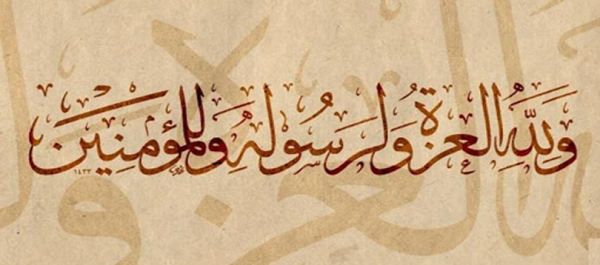 وَلِلَّهِ الْعِزَّةُ وَلِرَسُولِهِ وَلِلْمُؤْمِنِينَ
١٤٣٢